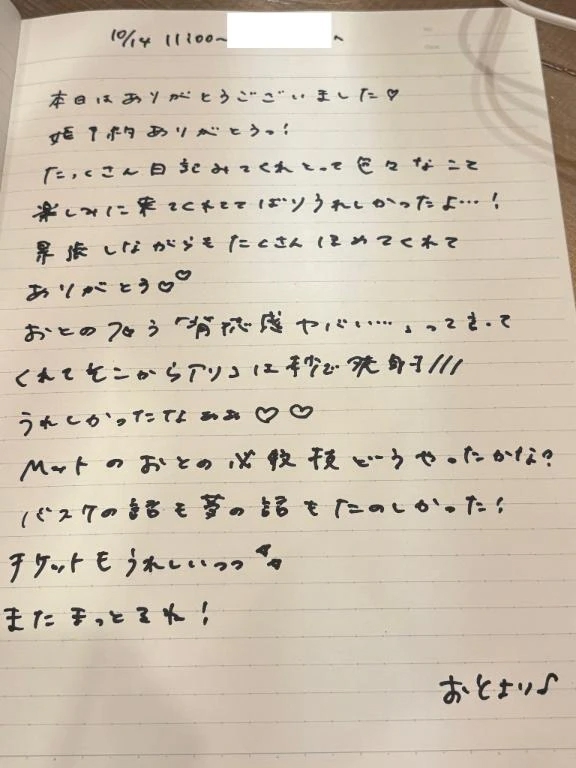 10/14 11:00〜 へ
本日はありがとうございました♡
姫予約ありがとうっ!
たっくさん日記みてくれとって色々なこて
楽しみに来てくれててばりうれしかったよ…!
緊張しながらもたくさんほめてくれて
ありがとう♡♡
おとのフェラ「背徳感ヤバい……」ってきって
くれてそこから は秒で発射///
うれしかったなぁぁ♡♡
Mットのおとの必殺技どうやったかな?
バスケの話も夢の話もたのしかった!
チケットもうれしいっっ
またまっとるね!
おとより♪